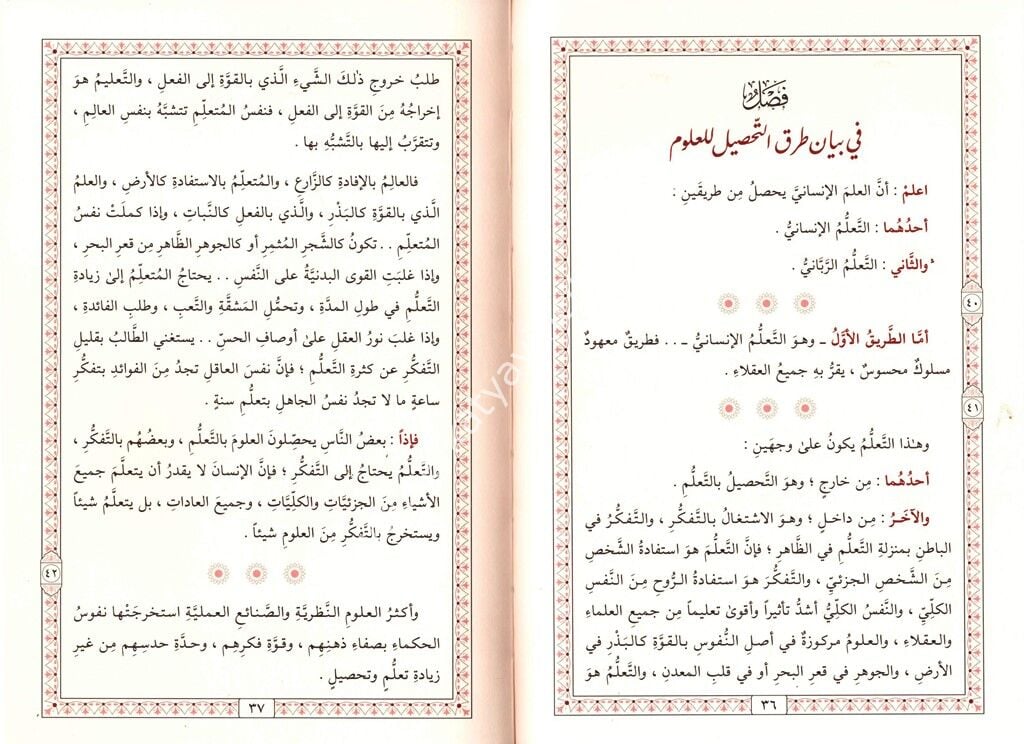 فَصْلٌ
في بيان طرق التَّحصيل للعلوم
اعلمْ : أنَّ العلمَ الإنسانيَّ يحصلُ مِن طريقَينِ :
أحدُهُما : التَّعلُّمُ الإنسانيُّ .
والثَّاني : التَّعلُّمُ الرَّبَّانيُّ .
٤٠
أمَّا الطَّريقُ الأوَّلُ ـ وهوَ التَّعلُّمُ الإنسانيُّ ـ . . فطريقٌ معهودٌ
مسلوكٌ محسوسٌ ، يقرُّ بهِ جميعُ العقلاءِ .
٤١
وهـٰذا التَّعلُّمُ يكونُ علىٰ وجهَينِ :
أحدُهُما : مِن خارجٍ ؛ وهوَ التَّحصيلُ بالتَّعلُّمِ .
والآخَـرُ : مِن داخلٍ ؛ وهوَ الاشتغالُ بالتَّفكُّرِ ، والتَّفكُرُ في
الباطنِ بمنزلةِ التَّعلُّمِ في الظَّاهرِ ؛ فإنَّ التَّعلُّمَ هوَ استفادةُ الشَّخصِ
مِنَ الشَّخصِ الجزئيِّ ، والتَّفكُرَ هوَ استفادةُ الرُّوحِ مِنَ النَّفسِ
الكلِّيِّ ، والنَّفسُ الكلِّيُّ أشدُّ تأثيراً وأقوىٰ تعليماً مِن جميعِ العلماءِ
والعقلاءِ ، والعلومُ مركوزةٌ في أصلِ النُّفوسِ بالقوَّةِ كالبَذْرِ في
الأرضِ ، والجوهرِ في قعرِ البحرِ أو في قلبِ المعدنِ ، والتَّعلُّمُ هوَ
٣٦
طلبُ خروجِ ذٰلكَ الشَّيءِ الَّذي بالقوَّةِ إلى الفعلِ ، والتَّعليمُ هوَ
إخراجُهُ مِنَ القوَّةِ إلى الفعلِ ، فنفسُ المُتعلِّمِ تتشبَّهُ بنفسِ العالِمِ ،
وتتقرَّبُ إليها بالتَّشبُّهِ بها .
فالعالِمُ بالإفادةِ كالزَّارعِ ، والمُتعلِّمُ بالاستفادةِ كالأرضِ ، والعلمُ
الَّذي بالقوَّةِ كالبَذْرِ ، والَّذي بالفعلِ كالنَّباتِ ، وإذا كملَتْ نفسُ
المُتعلِّمِ . . تكونُ كالشَّجرِ المُثمرِ أو كالجوهرِ الظَّاهرِ مِن قعرِ البحرِ ،
وإذا غلبَتِ القوى البدنيَّةُ على النَّفسِ . . يحتاجُ المُتعلِّمُ إلىٰ زيادةِ
التَّعلُّمِ في طولِ المدَّةِ ، وتحمُّلِ المَشقَّةِ والتَّعبِ ، وطلبِ الفائدةِ ،
وإذا غلبَ نورُ العقلِ علىٰ أوصافِ الحسِّ . . يستغني الطَّالبُ بقليلِ
التَّفكُّرِ عن كثرةِ التَّعلُّمِ ؛ فإنَّ نفسَ العاقلِ تجدُ مِنَ الفوائدِ بتفكُّرِ
ساعةٍ ما لا تجدُ نفسُ الجاهلِ بتعلُّمِ سنةٍ .
فإذاً : بعضُ النَّاسِ يحصّلونَ العلومَ بالتَّعلُّمِ ، وبعضُهُم بالتَّفكُّرِ ،
والتَّعلُّمُ يحتاجُ إلى التَّفكُّرِ ؛ فإنَّ الإنسانَ لا يقدرُ أن يتعلَّمَ جميعَ
الأشياءِ مِنَ الجزئيَّاتِ والكلِّيَّاتِ ، وجميعَ العاداتِ ، بل يتعلَّمُ شيئاً
ويستخرجُ بالتَّفكُرِ مِنَ العلومِ شيئاً .
٤٢
وأكثرُ العلومِ النَّظريَّةِ والصَّنائعِ العمليَّةِ استخرجَتْها نفوسُ
الحكماءِ بصفاءِ ذهنِهِم ، وقوَّةِ فكرِهِم ، وحدَّةِ حدسِهِم مِن غيرِ
زيادةِ تعلُّمٍ وتحصيلٍ .
٣٧